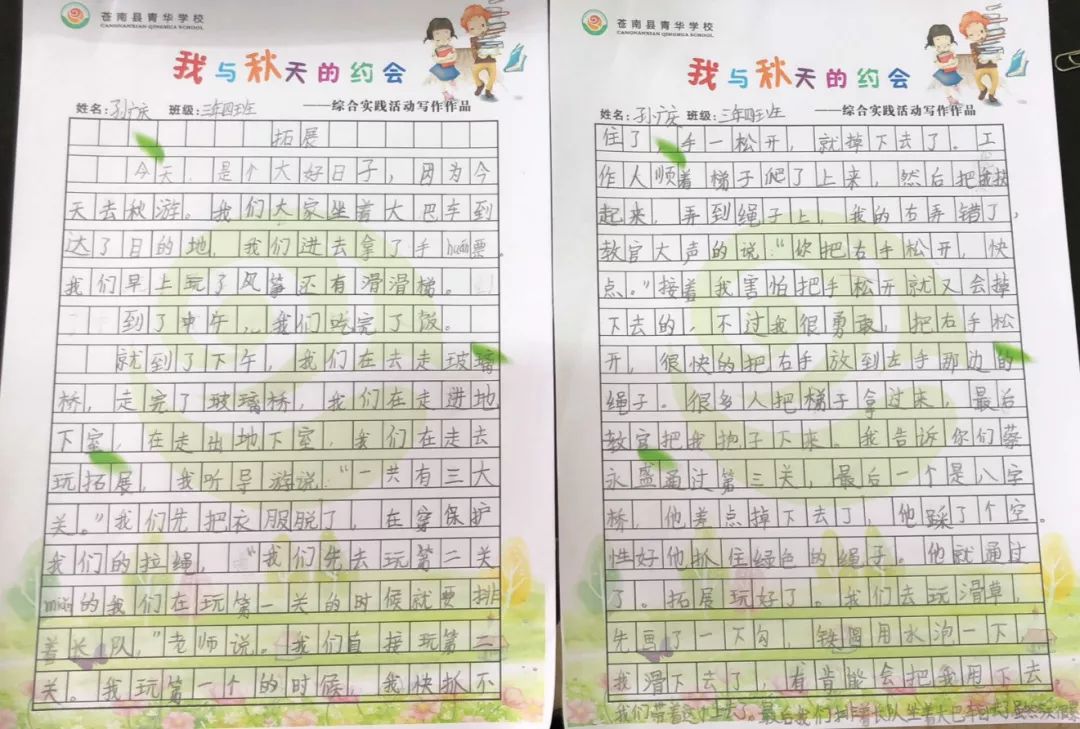 苍南县青华学校
CANGNANXIAN QINGHUA SCHOOL
我与秋天的约会
姓名：孙广庆 班级：三年四班 ——综合实践活动写作作品
拓展
今天，是个大好日子，因为今
天去秋游。我们大家坐着大巴车到
达了目的地，我们进去拿了手huán票。
我们早上玩了风筝还有滑滑梯。
到了中午，我们吃完了饭。
就到了下午，我们在去走玻璃
桥，走完了玻璃桥，我们在走进地
下室，在走出地下室，我们在走去
玩拓展，我听导游说：“一共有三大
关。”我们先把衣服脱了，在穿保护
我们的拉绳，“我们先去玩第二关
的我们在玩第一关的时候就要排
着长队，”老师说。我们直接玩第二
关。我玩第一个的时候，我快抓不
苍南县青华学校
CANGNANXIAN QINGHUA SCHOOL
我与秋天的约会
姓名：孙广庆 班级：三年四班 ——综合实践活动写作作品
住了，手一松开，就掉下去了。工
作人顺着梯子爬了上来，然后把我扶
起来，弄到绳子上，我的右弄错了，
教官大声的说：“你把右手松开，快
点。”接着我害怕把手松开就又会掉
下去的，不过我很勇敢，把右手松
开，很快的把右手放到左手那边的
绳子。很多人把梯子拿过来，最后
教官把我抱子下来。我告诉你们蔡
永盛通过第三关，最后一个是八字
桥，他差点掉下去了，他踩了个空。
性好他抓住绿色的绳子。他就通过
了。拓展玩好了。我们去玩滑草，
先画了一下勾 用水泡一下，
我滑下去了，有肯能会把我甩下去
我们带着这个上去了。最后我们排着长队坐着大巴车回